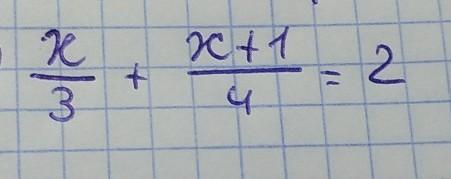 x/3 + (x+1)/4 = 2